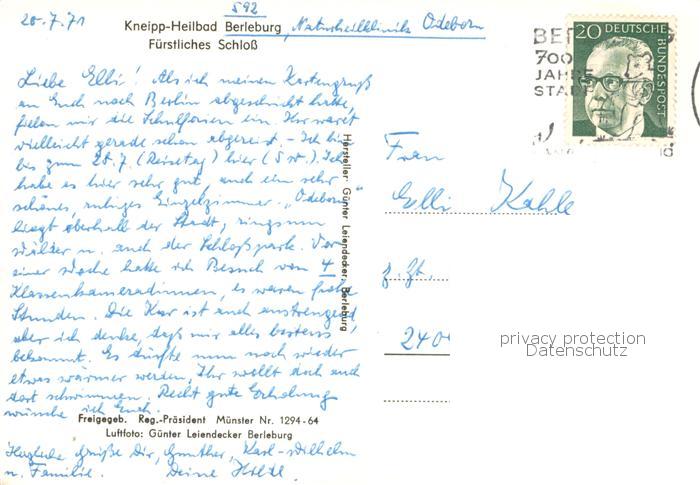 20.7.71
592
Kneipp-Heilbad Berleburg, Naturheilklinik Odeborn
Fürstliches Schloß
Liebe Elli! Als ich meinen Kartengruß
an Euch nach Berlin abgeschickt hatte,
fielen mir die Schulferien ein. Ihr waret
vielleicht gerade schon abgereist. - Ich bin
bis zum 28.7. (Reisetag) hier (5 W.). Ich
habe es hier sehr gut, auch ein sehr
schönes, ruhiges Einzelzimmer. "Odeborn"
liegt oberhalb der Stadt, ringsum
Wälder u. auch der Schloßpark. Vor
einer Woche hatte ich Besuch von 4
Klassenkameradinnen, es waren frohe
Stunden. Die Kur ist auch anstrengend,
aber ich denke, daß mir alles bestens
bekommt. Es dürfte nun noch wieder
etwas wärmer werden, Ihr wollt doch auch
dort schwimmen. Recht gute Erholung
wünsche ich Euch.
Freigegeb. Reg.-Präsident Münster Nr. 1294-64
Luftfoto: Günter Leiendecker Berleburg
Herzliche Grüße Dir, Günther, Karl-Wilhelm
u. Familie. Deine
Hersteller: Günter Leiendecker, Berleburg
BER
700
JAHRE
STADT
20 DEUTSCHE
BUNDESPOST
Frau
Elli Kahle
z. Zt.
240
privacy protection
Datenschutz